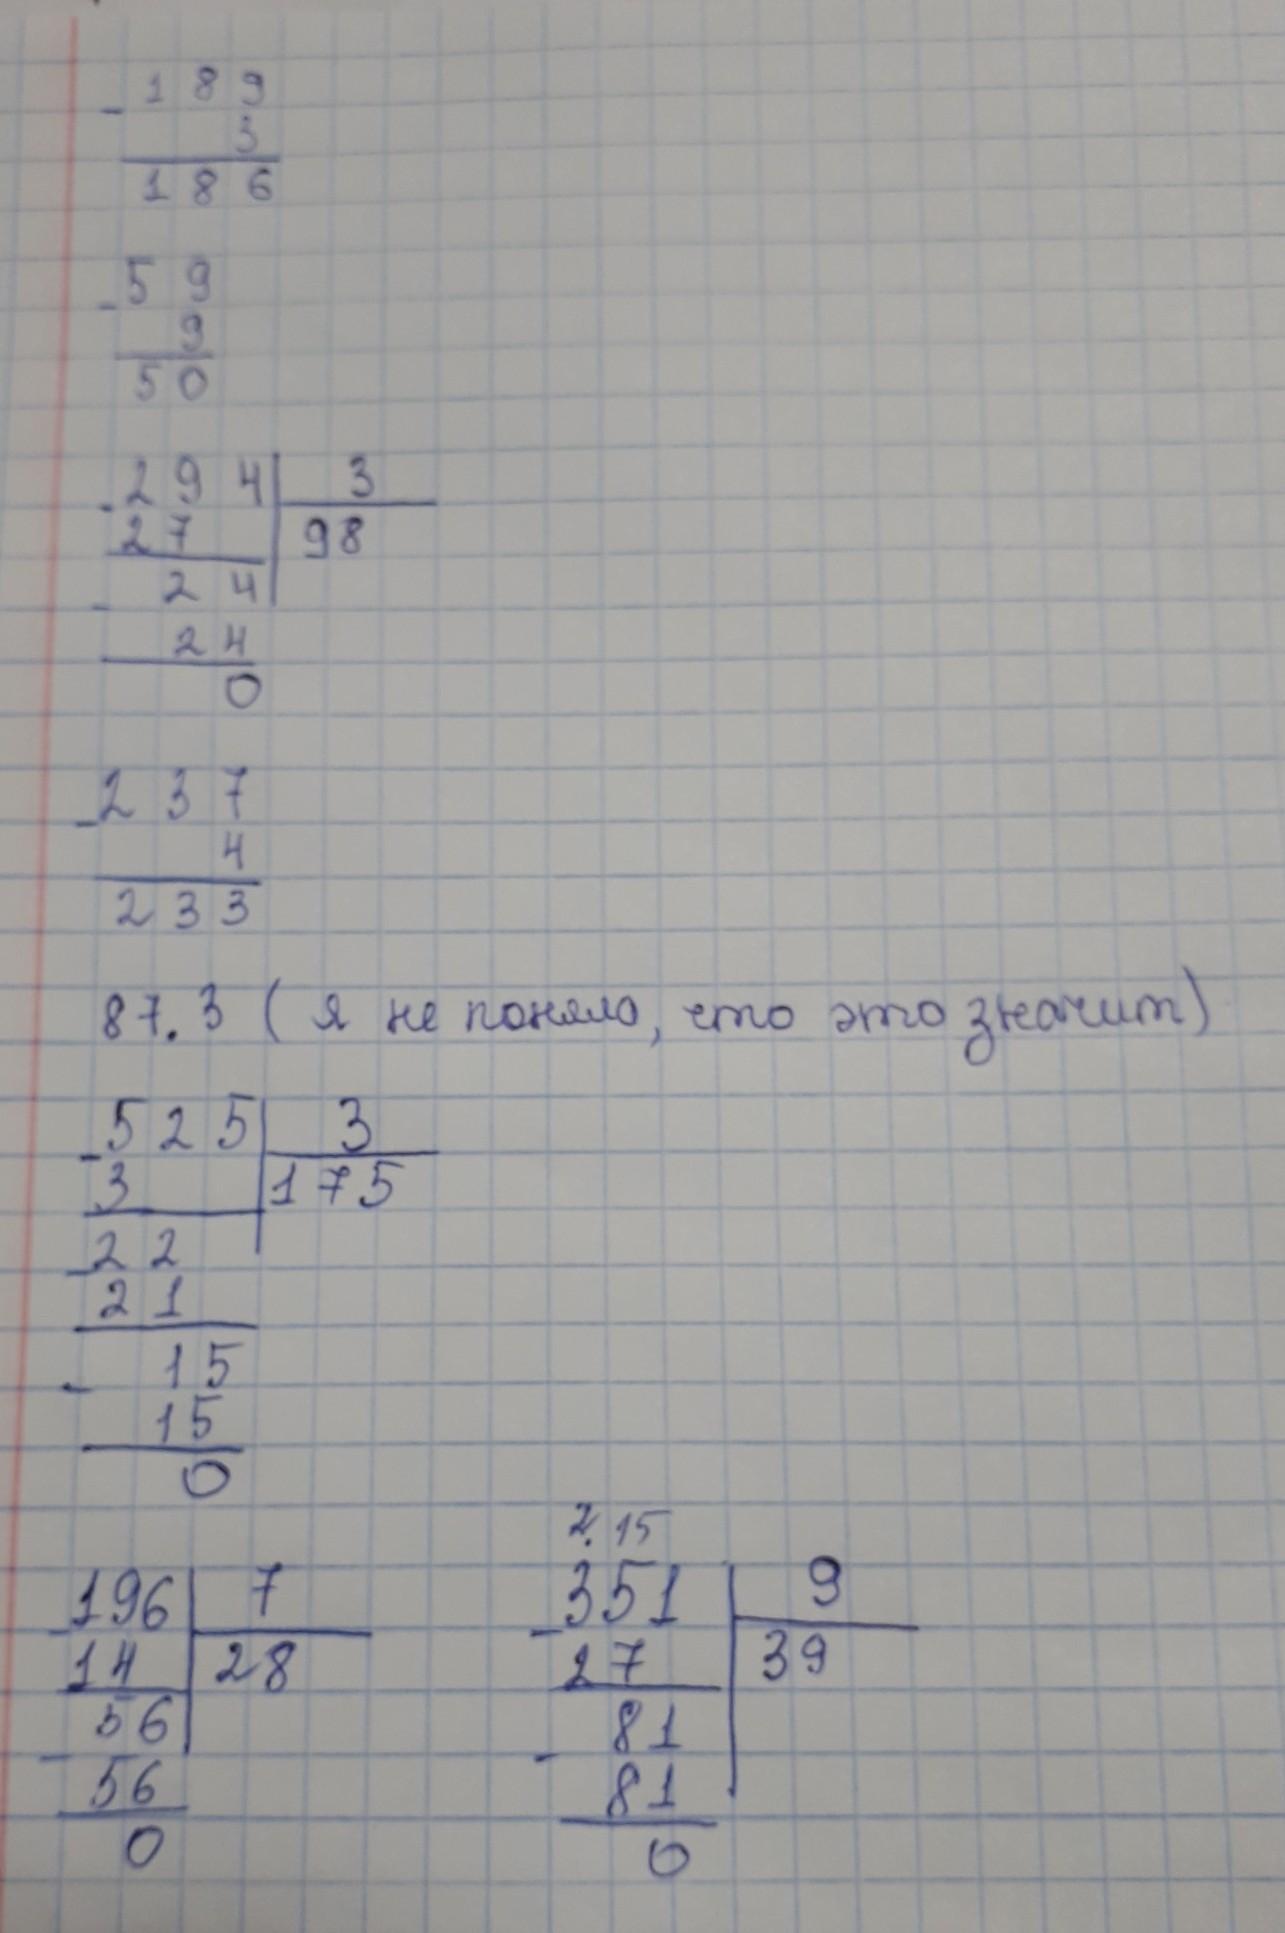 - 1 8 9
3
1 8 6
- 5 9
9
5 0
- 2 9 4 | 3
2 7 | 98
- 2 4
2 4
0
- 2 3 7
4
2 3 3
87.3 ( я не поняла, что это значит)
- 5 2 5 | 3
3 | 1 7 5
- 2 2
2 1
- 1 5
1 5
0
- 196 | 7
14 | 28
- 56
56
0
2. 15
- 351 | 9
27 | 39
- 81
81
0